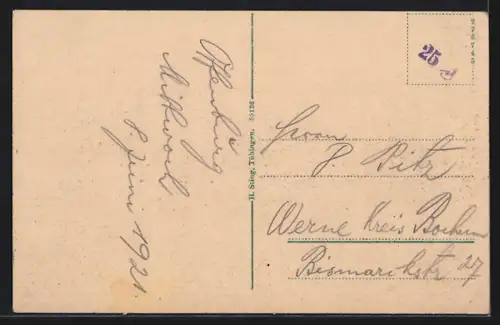 Offenburg.
Mittwoch
8. Juni 1921.
H. Sting, Tübingen. 59126
276743
25
Herrn
P. Pitz
Werne Kreis Bochum
Bismarckstr 27